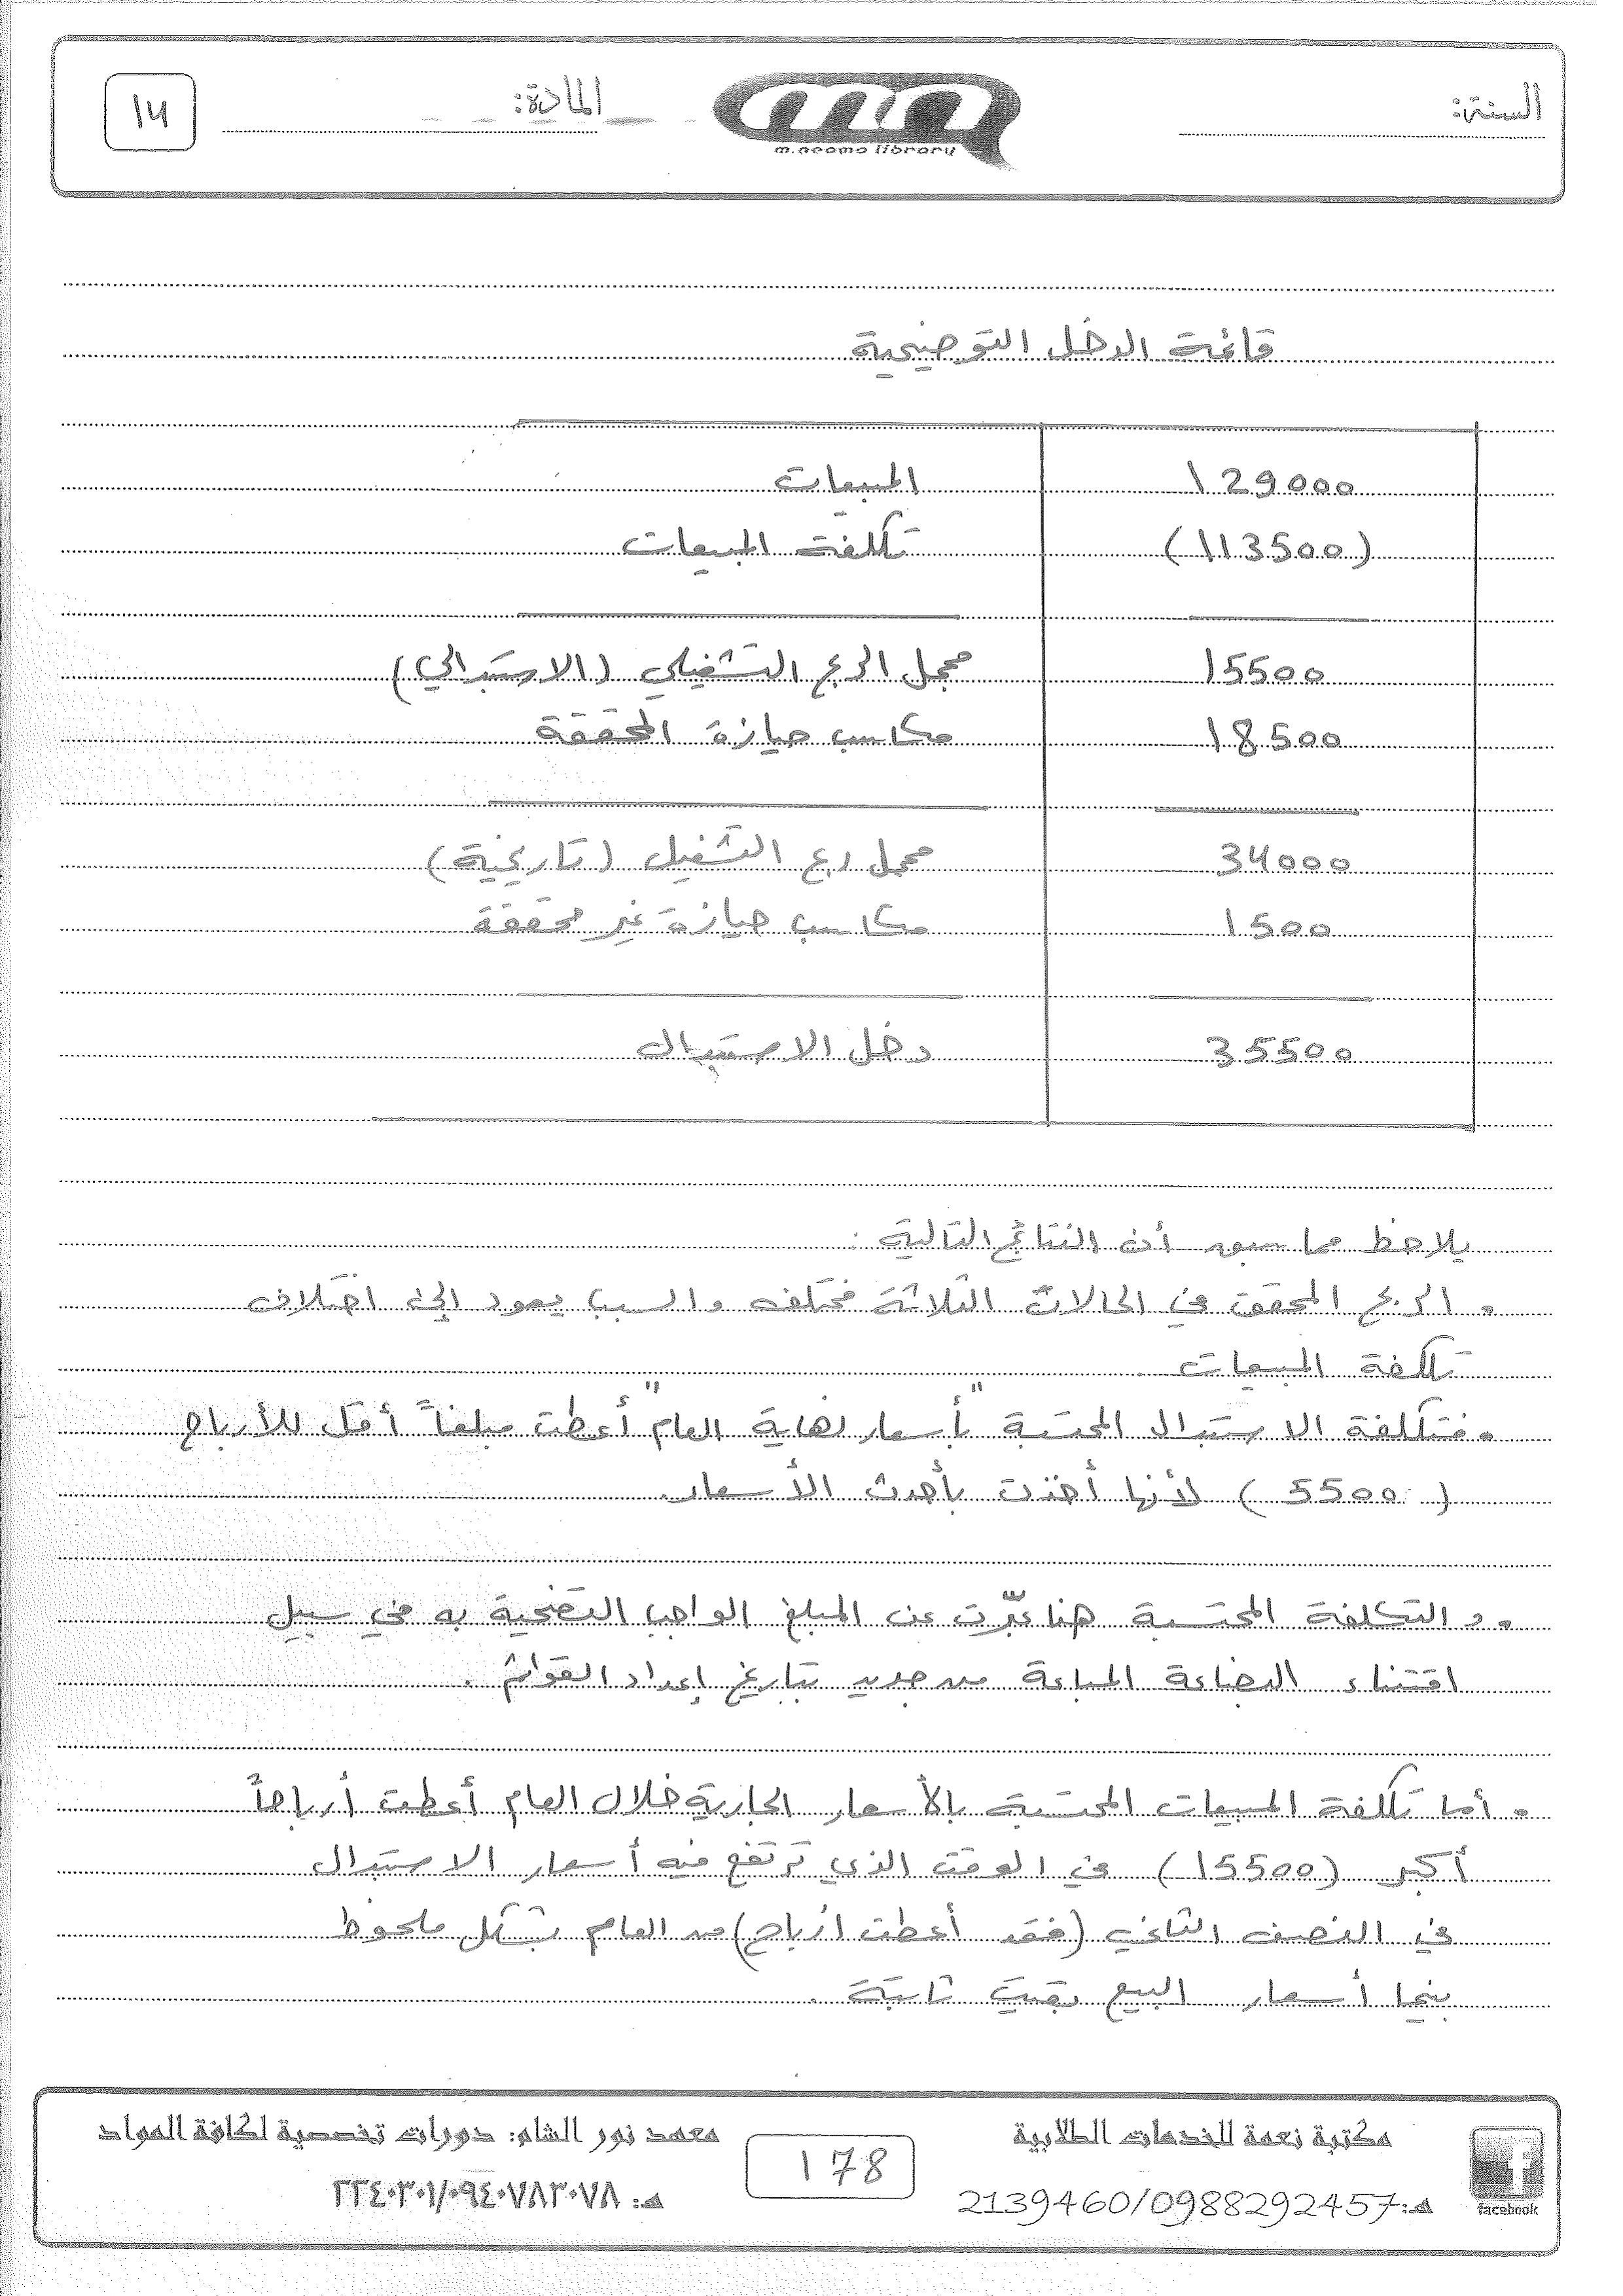 السنة:
m.neama library
المادة:
14
قائمة الدخل التوضيحية
129000 المبيعات
(113500) تكلفة المبيعات
15500 مجمل الربح التشغيلي (الاستبدالي)
18500 مكاسب حيازة المحققة
34000 مجمل ربح التشغيل (تاريخية)
1500 مكاسب حيازة غير محققة
35500 دخل الاستبدال
يلاحظ مما سبق أن النتائج التالية :
• الربح المحقق في الحالات الثلاثة مختلف والسبب يعود إلى اختلاف
تكلفة المبيعات
• فتكلفة الاستبدال المحتسبة "بأسعار نهاية العام" أعطت مبلغاً أقل للأرباح
(5500) لأنها أخذت بأحدث الأسعار.
• والتكلفة المحتسبة هنا عبّرت عن المبلغ الواجب التضحية به في سبيل
اقتناء البضاعة المباعة من جديد بتاريخ إعداد القوائم .
• أما تكلفة المبيعات المحتسبة بالأسعار الجارية خلال العام أعطت أرباحاً
أكبر (15500) في الوقت الذي ترتفع فيه أسعار الاستبدال
في النصف الثاني (فقد أعطت أرباح) من العام بشكل ملحوظ
بينما أسعار البيع بقيت ثابتة .
مكتبة نعمة للخدمات الطلابية
هـ: 2139460/0988292457
facebook
178
معهد نور الشام: دورات تخصصية لكافة المواد
هـ: ٢٢٤٠٣٠١/٠٩٤٠٧٨٣٠٧٨